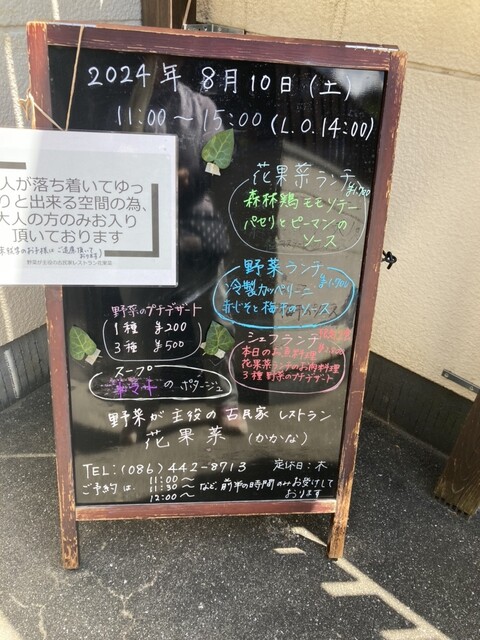 2024年 8月10日(土)
11:00～15:00(L.O.14:00)
人が落ち着いてゆっ
りと出来る空間の為、
大人の方のみお入り
頂いております
野菜が主役の古民家レストラン花果菜
花果菜ランチ
森林鶏モモソテー
パセリとピーマンの
ソース
野菜ランチ ¥1,700
冷製カッペリーニ
赤じそと梅干のソース
野菜のプチデザート
1種 ¥200
3種 ¥500
シェフランチ
本日のお魚料理
花果菜ランチのお肉料理
3種野菜のプチデザート
スープ
のポタージュ
野菜が主役の古民家レストラン
花果菜 (かかな)
TEL:(086)442-8713 定休日:木
ご予約は、11:00～
11:30～など、前半の時間のみお受けして
12:00～ おります